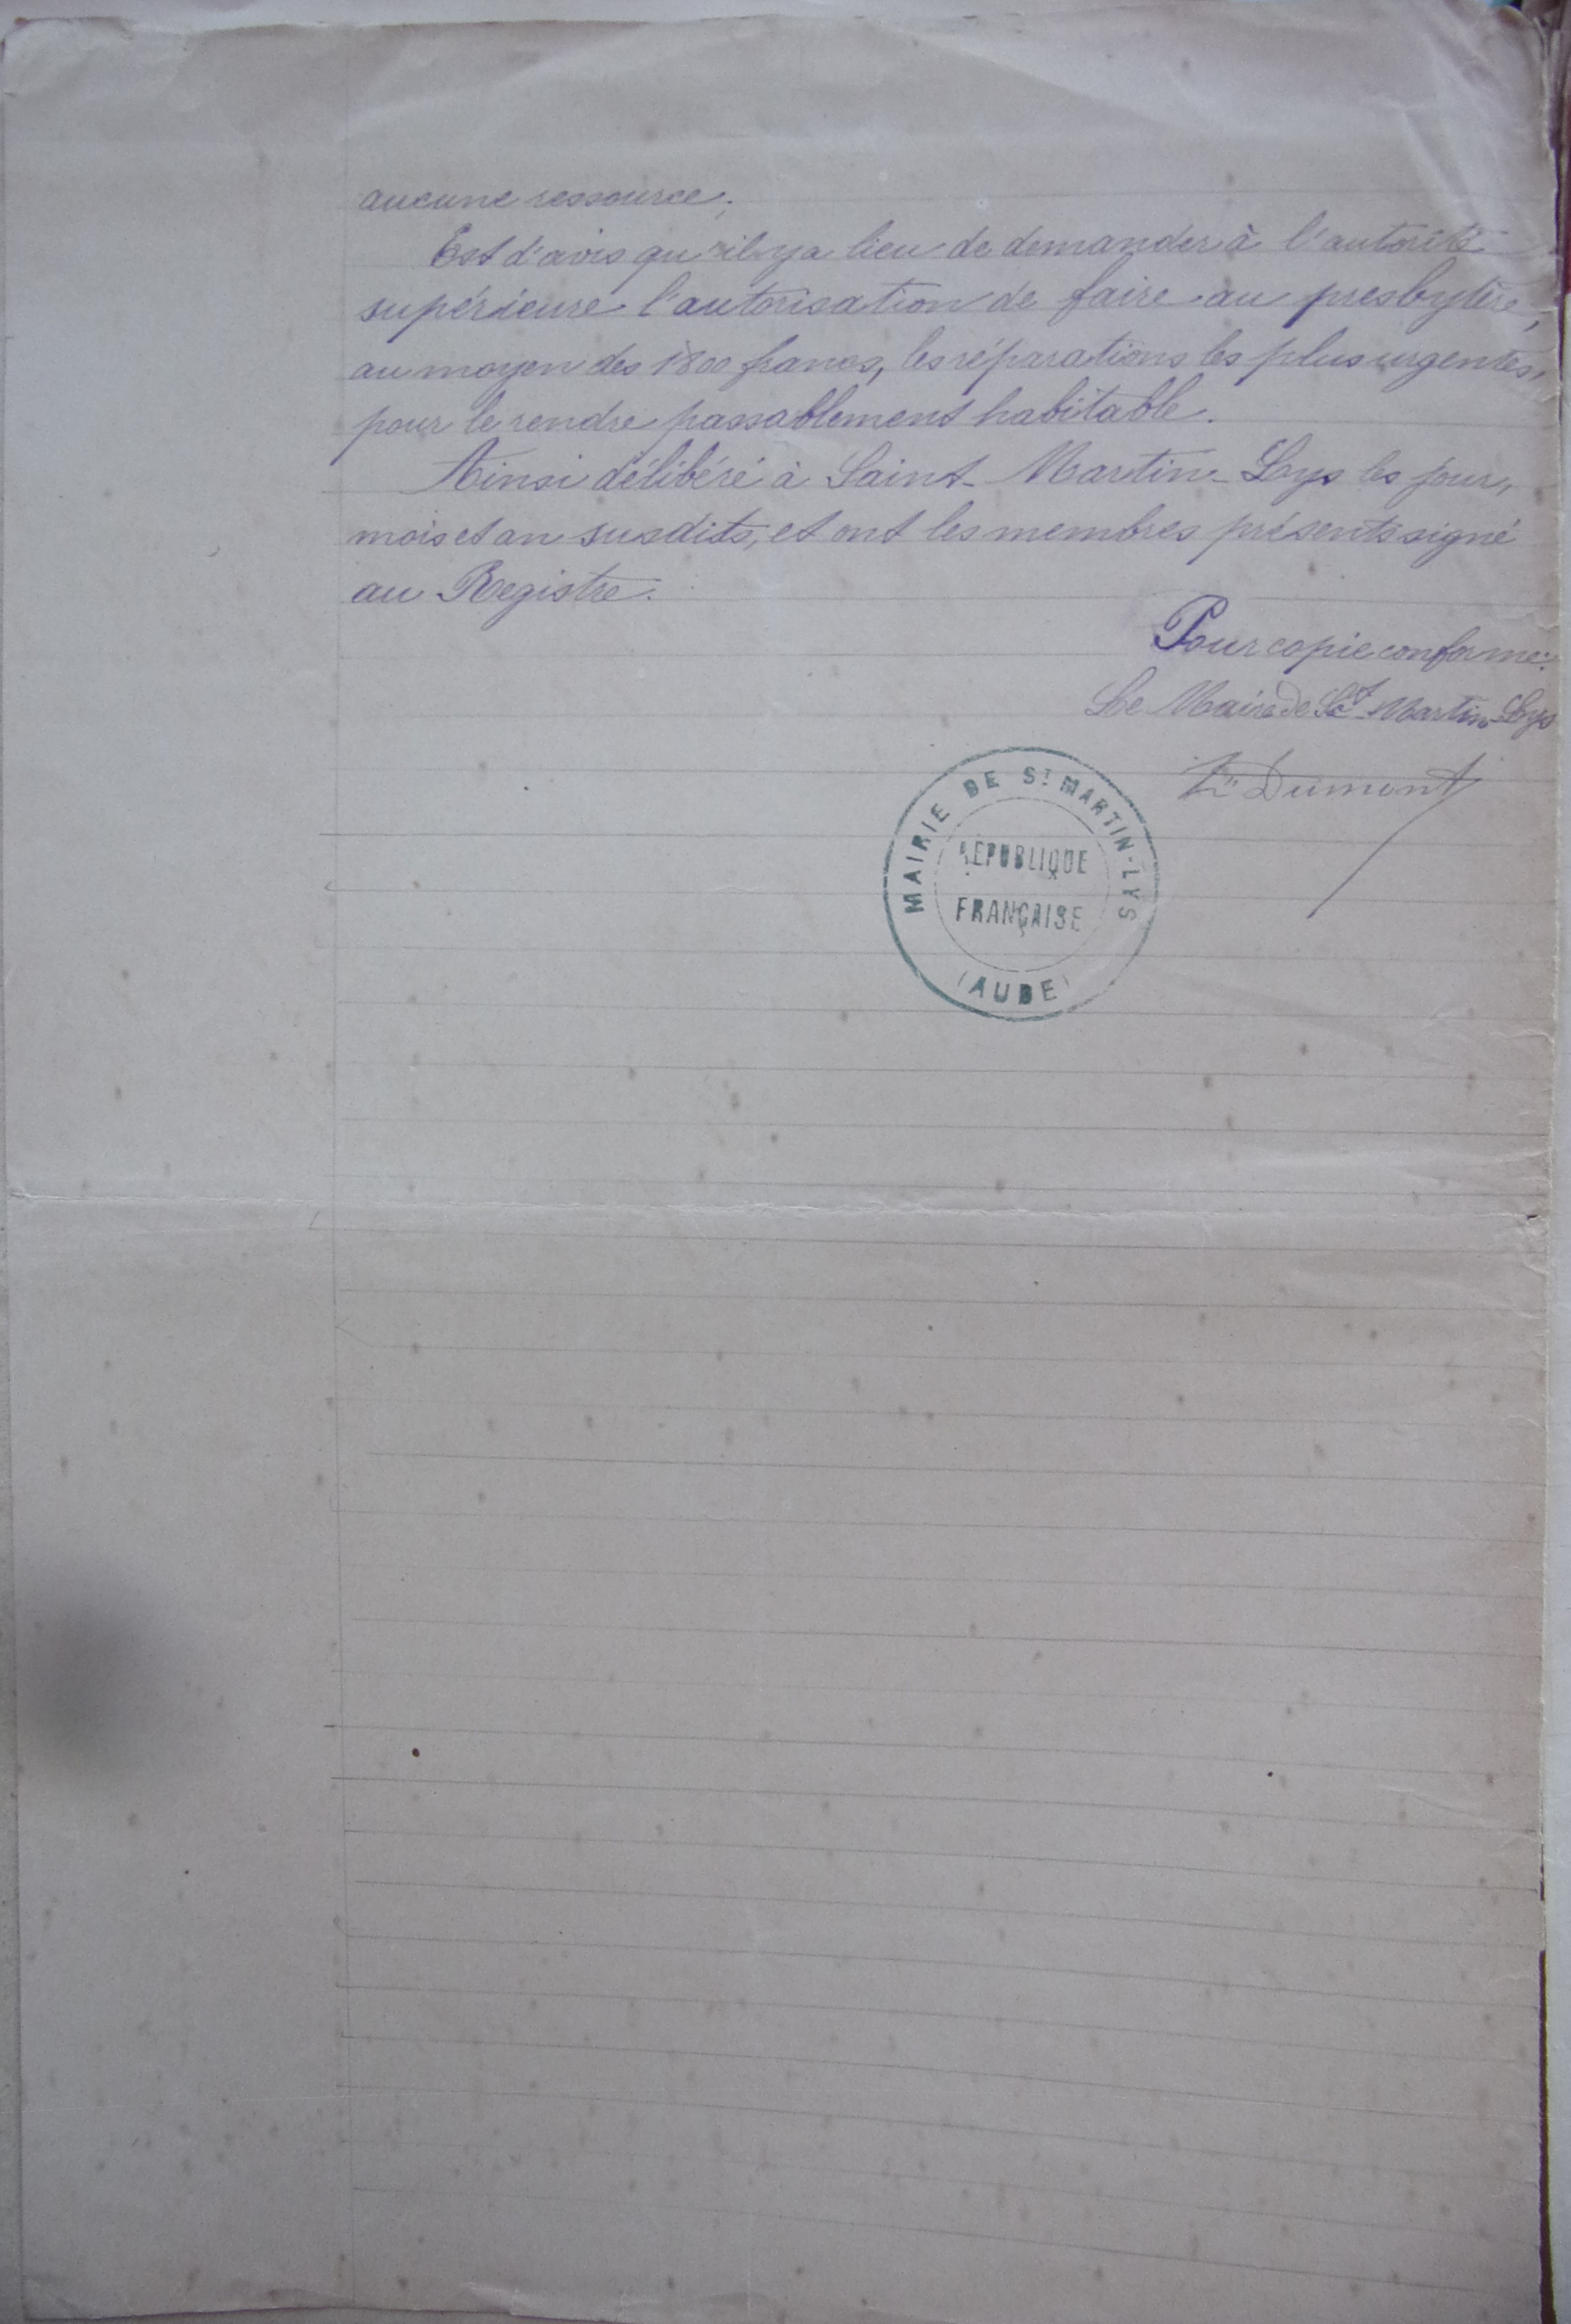 aucune ressource;
Est d'avis qu'il y a lieu de demander à l'autorité
supérieure l'autorisation de faire au presbytère,
au moyen des 1800 francs, les réparations les plus urgentes,
pour le rendre passablement habitable.
Ainsi délibéré à Saint-Martin-Lys les jour,
mois et an susdits, et ont les membres présents signé
au Registre.
Pour copie conforme:
Le Maire de St Martin-Lys
Dumont
MAIRIE DE ST MARTIN-LYS
RÉPUBLIQUE
FRANÇAISE
(AUDE)